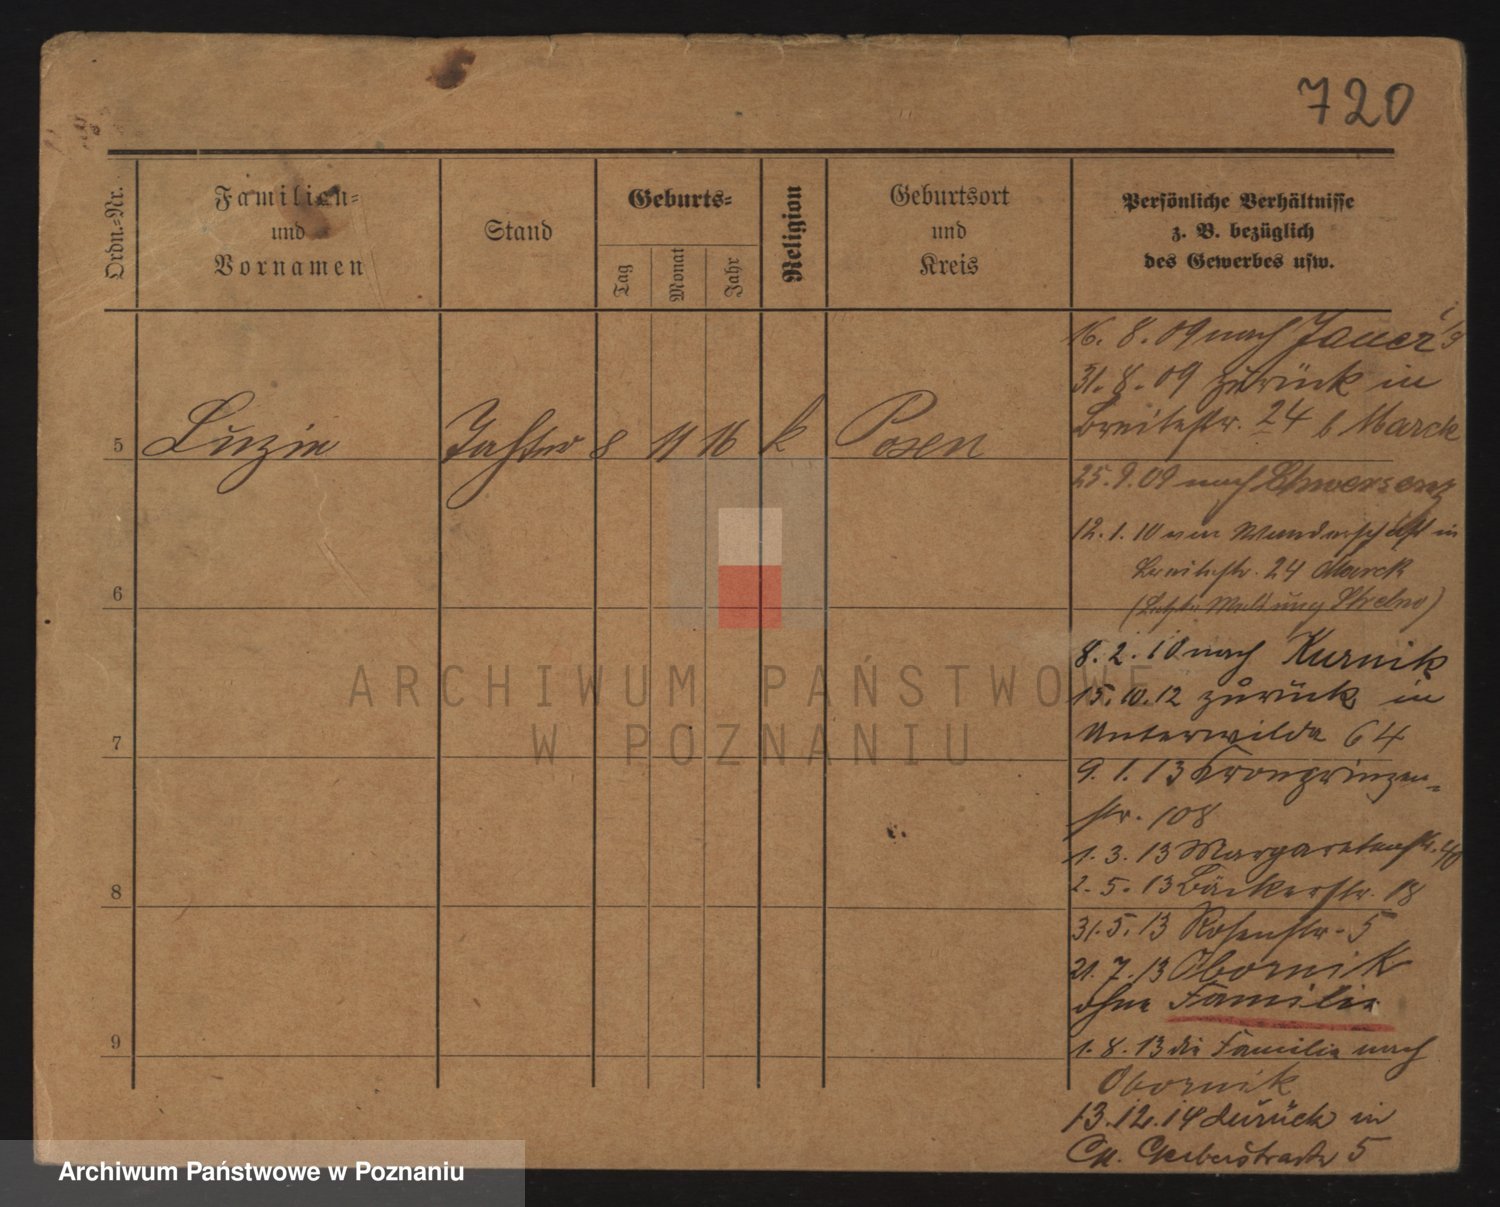 720
Ordn.-Nr.
Familien-
und
Vornamen
Stand
Geburts-
Tag
Monat
Jahr
Religion
Geburtsort
und
Kreis
Persönliche Verhältnisse
z. B. bezüglich
des Gewerbes usw.
5 Luzie Tochter 8 11 16 k Posen
6
7
8
9
16. 8. 09 nach Jauer
31. 8. 09 zurück in
Breitestr. 24 b Marck
25. 9. 09 nach Schwersenz
12. 1. 10 von Wanderschaft in
Breitestr. 24 Marck
(Letzte Meldung Strelno)
8. 2. 10 nach Kurnik
15. 10. 12 zurück in
Unterwilda 64
9. 1. 13 Kronprinzen-
str. 108
1. 3. 13 Margaretenstr. 40
2. 5. 13 Bäckerstr. 18
31. 5. 13 Rosenstr. 5
21. 7. 13 Obornik
ohne Familie
1. 8. 13 die Familie nach
Obornik
13. 12. 14 zurück in
Gr. Gerberstraße 5
ARCHIWUM PAŃSTWOWE
W POZNANIU
Archiwum Państwowe w Poznaniu